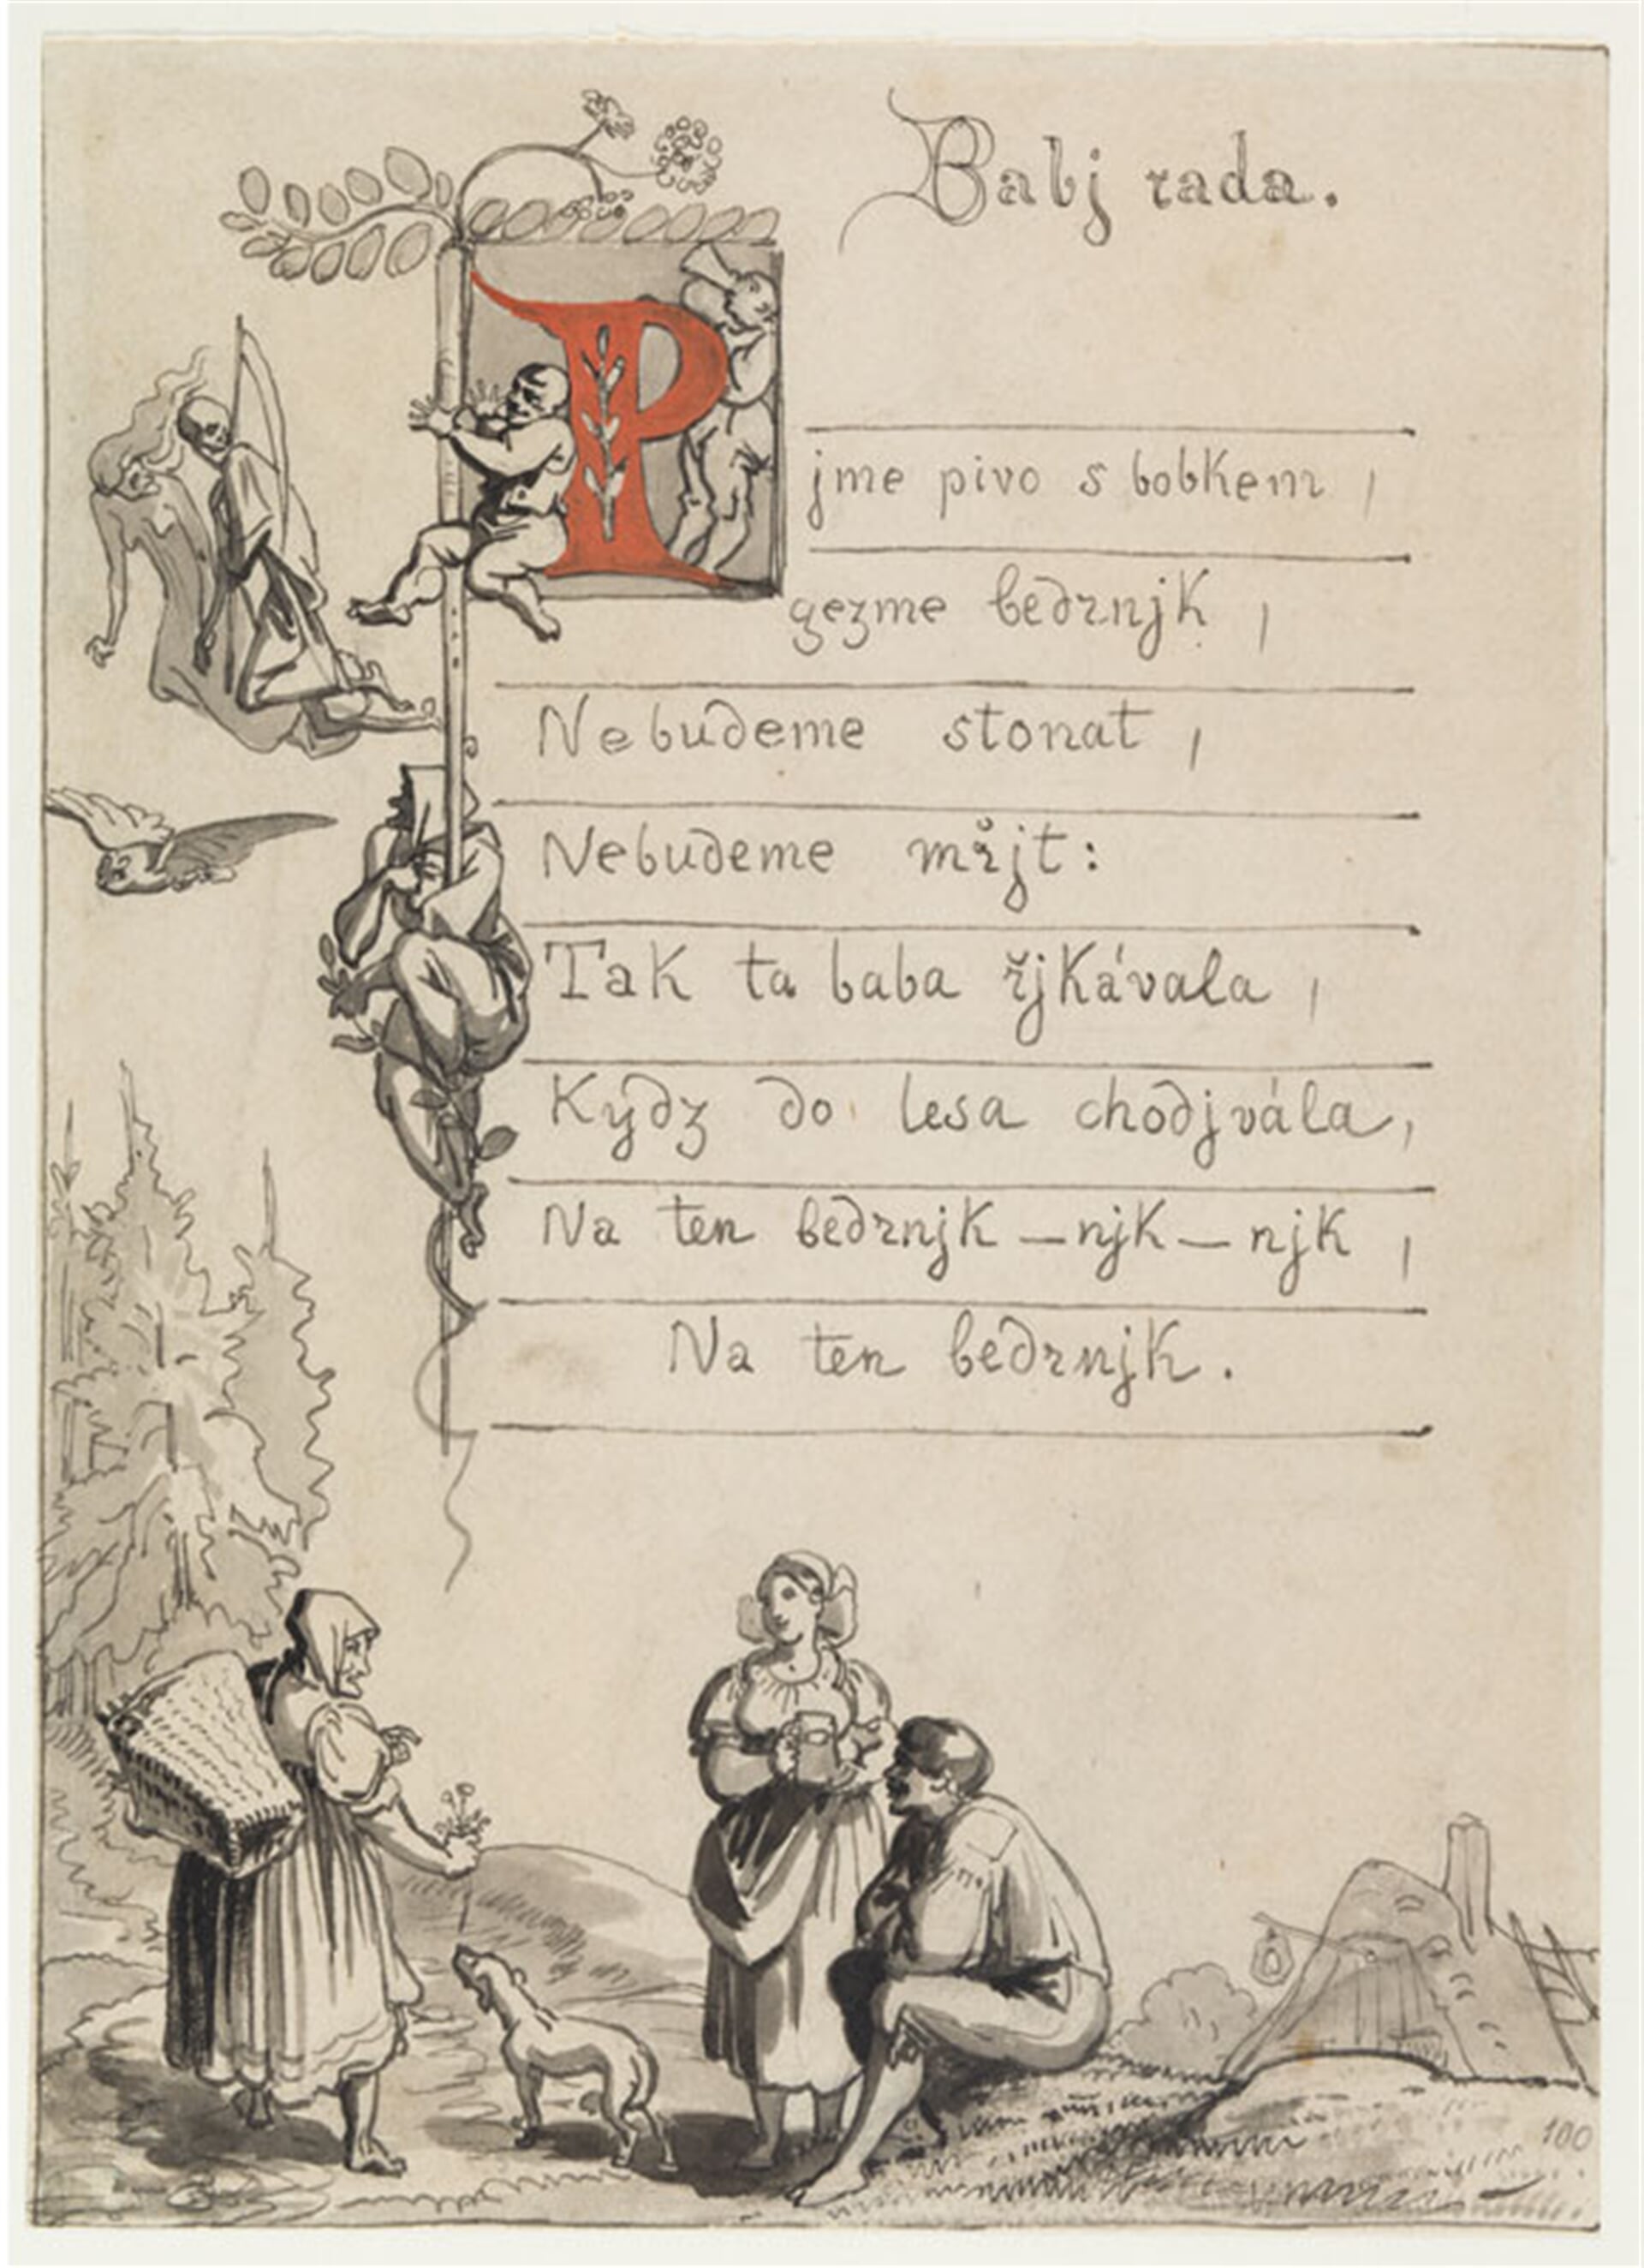 Babj rada.
Pjme pivo s bobkem,
gezme bedrnjk,
Nebudeme stonat,
Nebudeme mřjt:
Tak ta baba řjkávala,
Kýdz do lesa chodjvála,
Na ten bedrnjk — njk — njk,
Na ten bedrnjk.
100